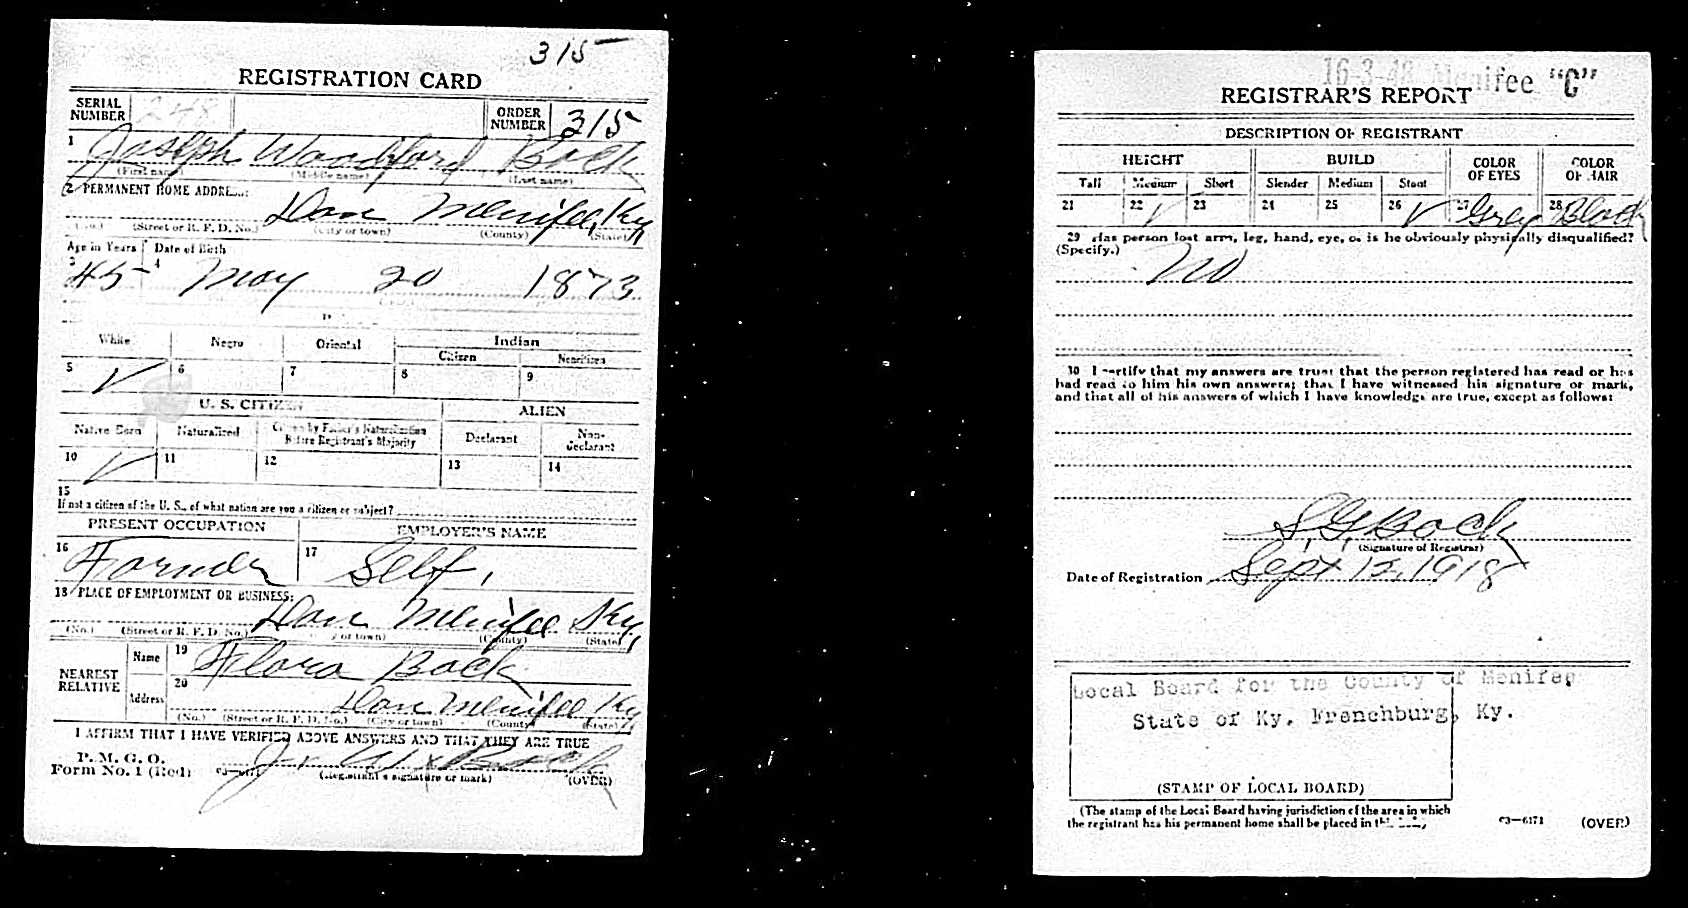 315
REGISTRATION CARD
SERIAL NUMBER 248 ORDER NUMBER 315
1 Joseph Woodford Back
(First name) (Middle name) (Last name)
2 PERMANENT HOME ADDRESS:
Dan Menifee Ky,
(No.) (Street or R. F. D. No.) (City or town) (County) (State)
Age in Years Date of Birth
3 45 4 May 20 1873
White Negro Oriental Indian
Citizen Noncitizen
5 ✓ 6 7 8 9
U. S. CITIZEN ALIEN
Native Born Naturalized Citizen by Father's Naturalization Before Registrant's Majority Declarant Non-declarant
10 ✓ 11 12 13 14
15
If not a citizen of the U. S., of what nation are you a citizen or subject?
PRESENT OCCUPATION EMPLOYER'S NAME
16 Farmer 17 Self,
18 PLACE OF EMPLOYMENT OR BUSINESS:
Dan Menifee Ky,
(No.) (Street or R. F. D. No.) (City or town) (County) (State)
NEAREST RELATIVE Name 19 Flora Back
Address 20 Dan Menifee Ky,
(No.) (Street or R. F. D. No.) (City or town) (County) (State)
I AFFIRM THAT I HAVE VERIFIED ABOVE ANSWERS AND THAT THEY ARE TRUE
P. M. G. O.
Form No. 1 (Red) 03—6171 J. W. x Back
(Registrant's signature or mark) (OVER)
16-3-48 Menifee "C"
REGISTRAR'S REPORT
DESCRIPTION OF REGISTRANT
HEIGHT BUILD COLOR OF EYES COLOR OF HAIR
Tall Medium Short Slender Medium Stout
21 22 ✓ 23 24 25 26 ✓ 27 Grey 28 Black
29 Has person lost arm, leg, hand, eye, or is he obviously physically disqualified?
(Specify.) No
30 I certify that my answers are true; that the person registered has read or has
had read to him his own answers; that I have witnessed his signature or mark,
and that all of his answers of which I have knowledge are true, except as follows:
S. G. Back
(Signature of Registrar)
Date of Registration Sept 12, 1918
Local Board for the County of Menifee
State of Ky. Frenchburg, Ky.
(STAMP OF LOCAL BOARD)
(The stamp of the Local Board having jurisdiction of the area in which
the registrant has his permanent home shall be placed in this box.)
03—6171 (OVER)